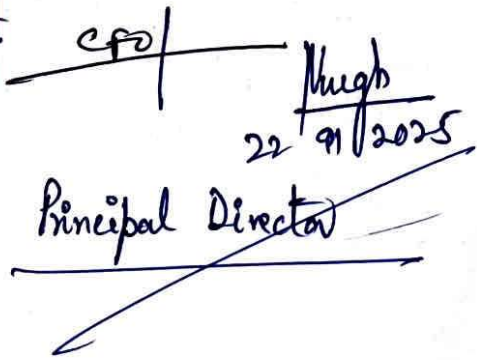 CFO
22 2025
Principal Director